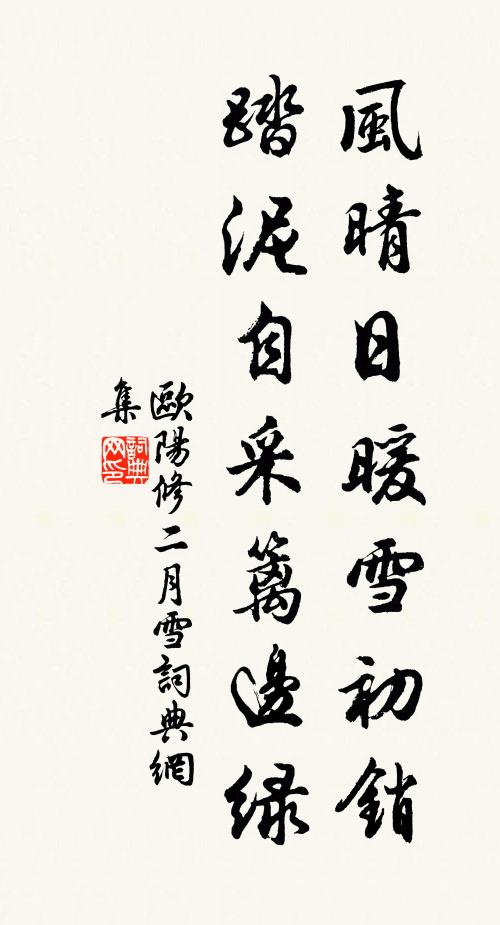 風晴日暖雪初銷
踏泥自采籬邊緑
歐陽修二月雪詞典網
集
詞典
网印